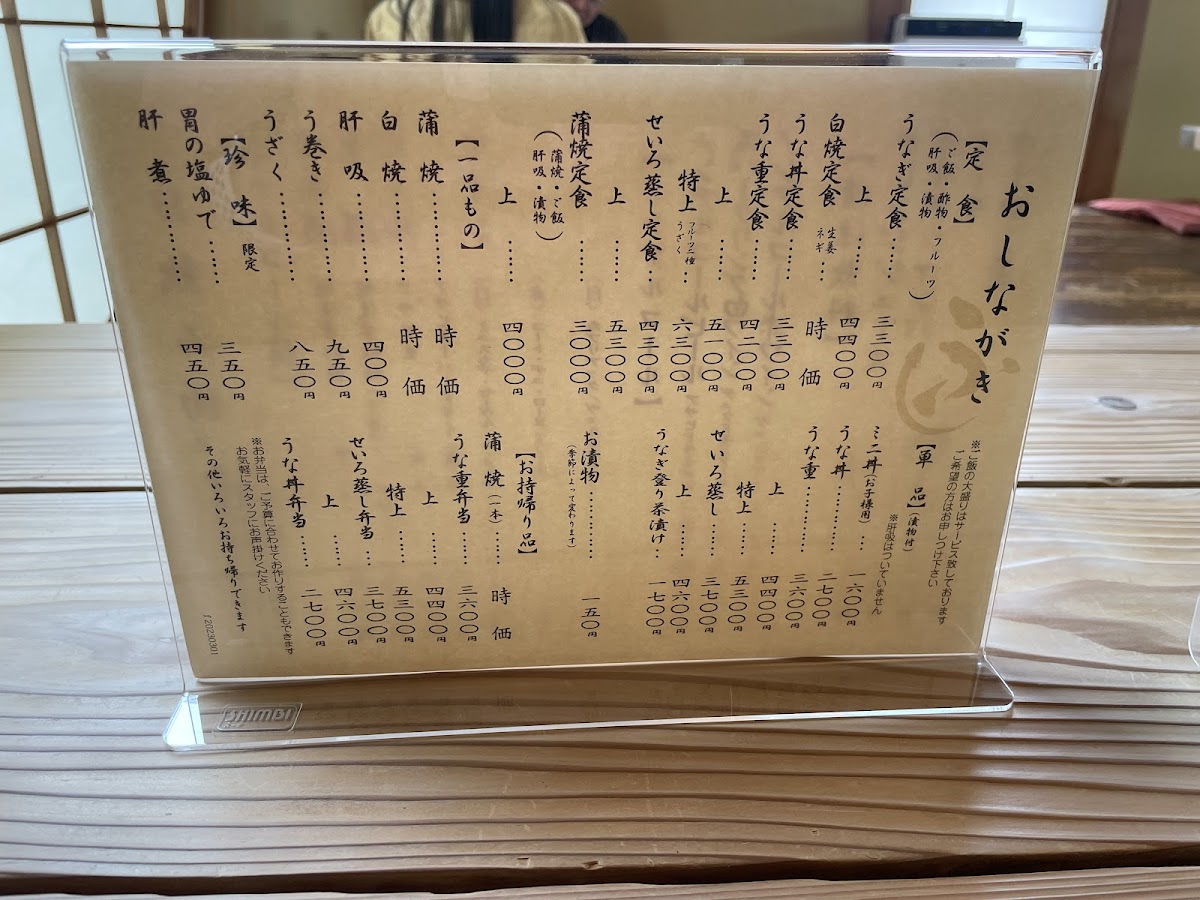 おしながき
【定 食】
(ご飯・酢物・フルーツ
肝吸・漬物)
うなぎ定食……三三〇〇円
上……四四〇〇円
白焼定食 生姜 ネギ…時価
うな丼定食……三三〇〇円
うな重定食……四二〇〇円
上……五一〇〇円
特上 フルーツ二種 うざく……六三〇〇円
せいろ蒸し定食…四三〇〇円
上……五三〇〇円
蒲焼定食……三〇〇〇円
(蒲焼・ご飯
肝吸・漬物)
上……四〇〇〇円
【一品もの】
蒲 焼…………時価
白 焼…………時価
肝 吸…………四〇〇円
う巻き…………九五〇円
うざく…………八五〇円
【珍 味】限定
胃の塩ゆで……三五〇円
肝 煮…………四五〇円
※ご飯の大盛りはサービス致しております
ご希望の方はお申しつけ下さい
【単 品】(漬物付)
※肝吸はついていません
ミニ丼(お子様用)…一六〇〇円
うな丼………二七〇〇円
うな重………三六〇〇円
上……四四〇〇円
特上……五三〇〇円
せいろ蒸し……三七〇〇円
上……四六〇〇円
うなぎ登り茶漬け…一七〇〇円
お漬物…………一五〇円
(季節によって変わります)
【お持帰り品】
蒲 焼(一本)……時価
うな重弁当……三六〇〇円
上……四四〇〇円
特上……五三〇〇円
せいろ蒸し弁当…三七〇〇円
上……四六〇〇円
うな丼弁当……二七〇〇円
※お弁当は、ご予算に合わせてお作りすることもできます
お気軽にスタッフにお声掛けください
その他いろいろお持ち帰りできます
SHIMBI